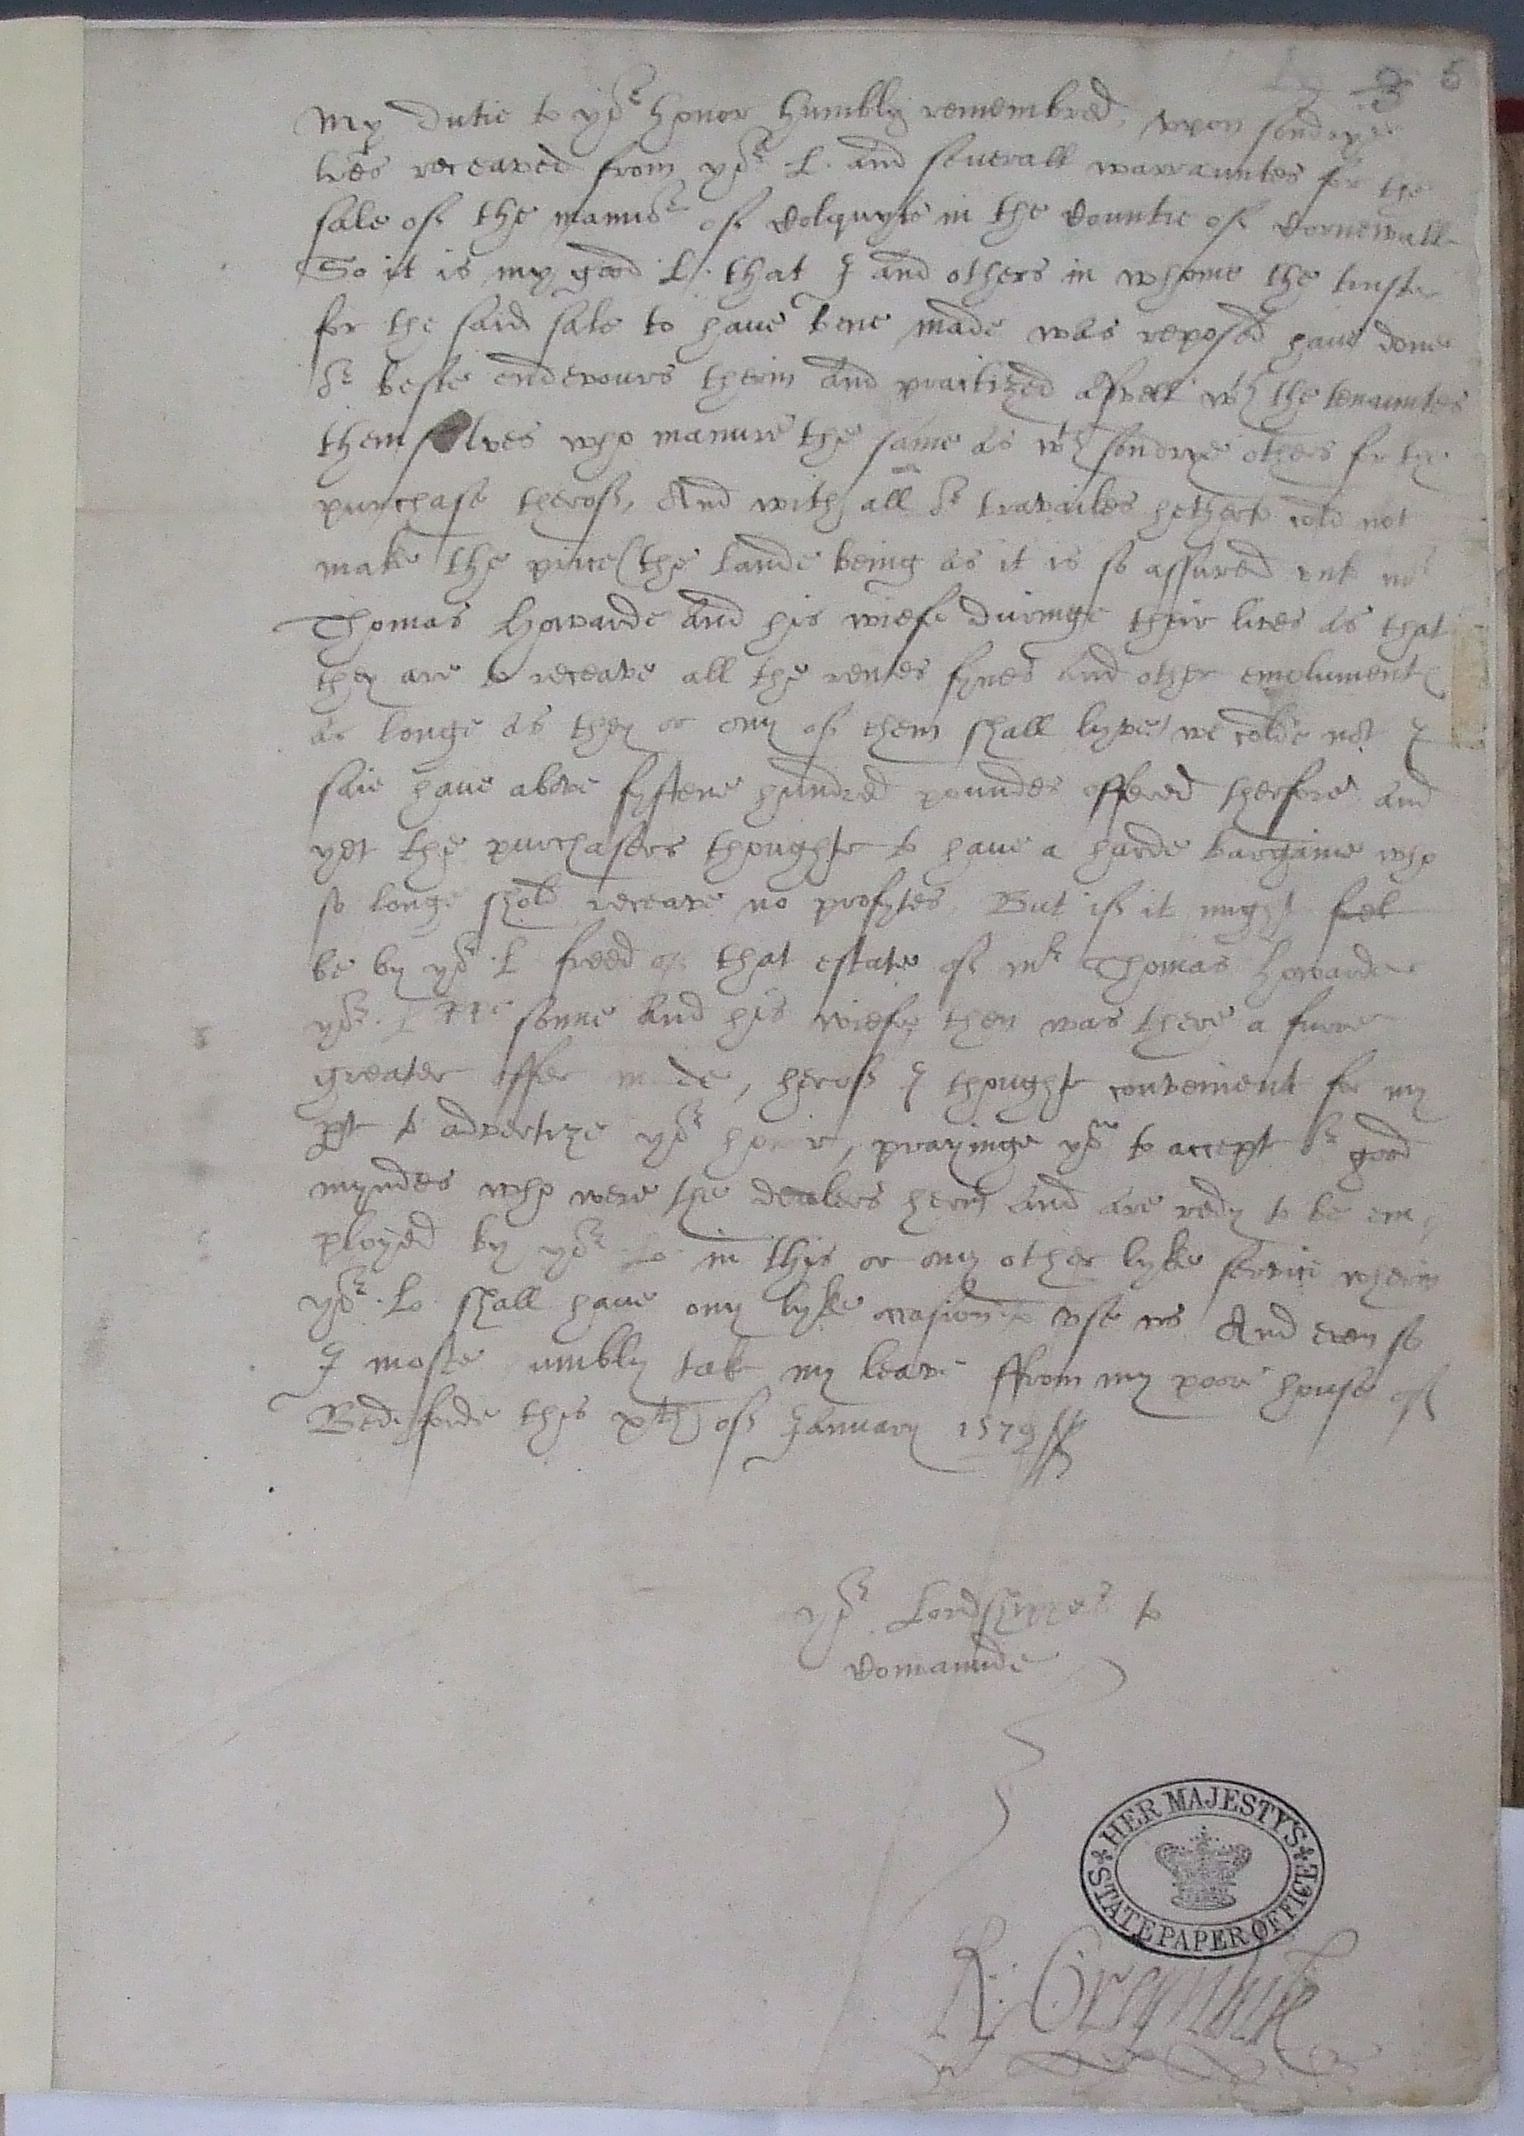 5
My dutie to yor honor humbly remembred, vpon sondrye
l̃res receaved from yor L. and seuerall warrauntes for the
sale of the manor of Colquyte in the Countie of Cornewall
So it is my good L. that I and others in whome the truste
for the said sale to have bene made was reposed have done
or beste endevours therin and practized aswell wth the tenauntes
themselves who manure the same as wth sondrye others for the
purchase therof, And with all or travailes hetherto cold not
make the price (the lande being as it is so assured vnto mr
Thomas Howarde and his wiefe duringe their lives as that
they are to receave all the rentes fynes and other emolumentes
as longe as they or ony of them shall lyve) we colde not I
saie have above fyftene hundred poundes offered therfore and
yet the purchasers thoughte to have a harde bargaine who
so longe shold receave no profytes. But if it might
be by yor L freed of that estate of mr Thomas Howarde
yor L sonne and his wiefe then was there a furre
greater offer made, herof I thoughte convenient for my
pt to advertize yor honor, prayinge yor to accept or good
myndes who were the dealers herin and are redy to be em
ployed by yor Lo in this or ony other lyke service wherin
yor Lo shall have ony lyke occasion to vse vs And even so
I moste umbly take my leave ffrom my poore house of
Bedeforde this xth of January 1579
yor Lordshippes to
Comaunde
HER MAJESTY'S STATE PAPER OFFICE
R: Greynvile